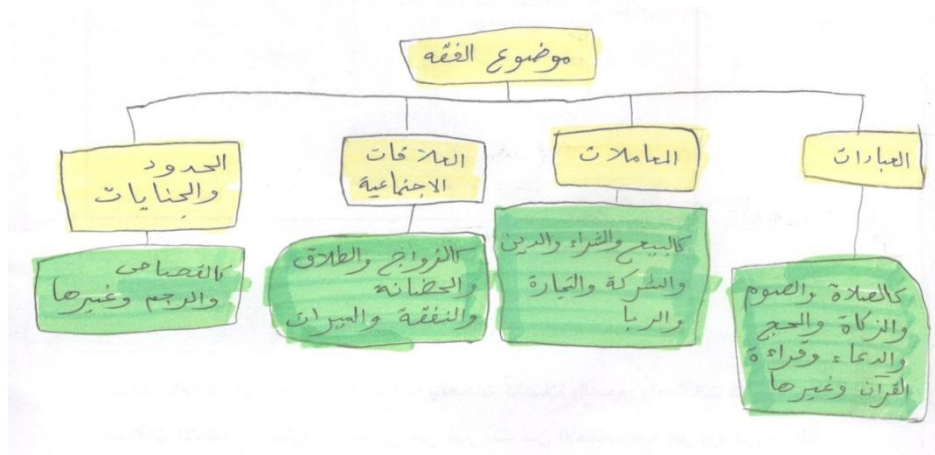 موضوع الفقه
العبادات
كالصلاة والصوم
والزكاة والحج
والدعاء وقراءة
القرآن وغيرها
المعاملات
كالبيع والشراء والدين
والشركة والتجارة
والربا
العلاقات
الاجتماعية
كالزواج والطلاق
والحضانة
والنفقة والميراث
الحدود
والجنايات
كالقصاص
والرجم وغيرها